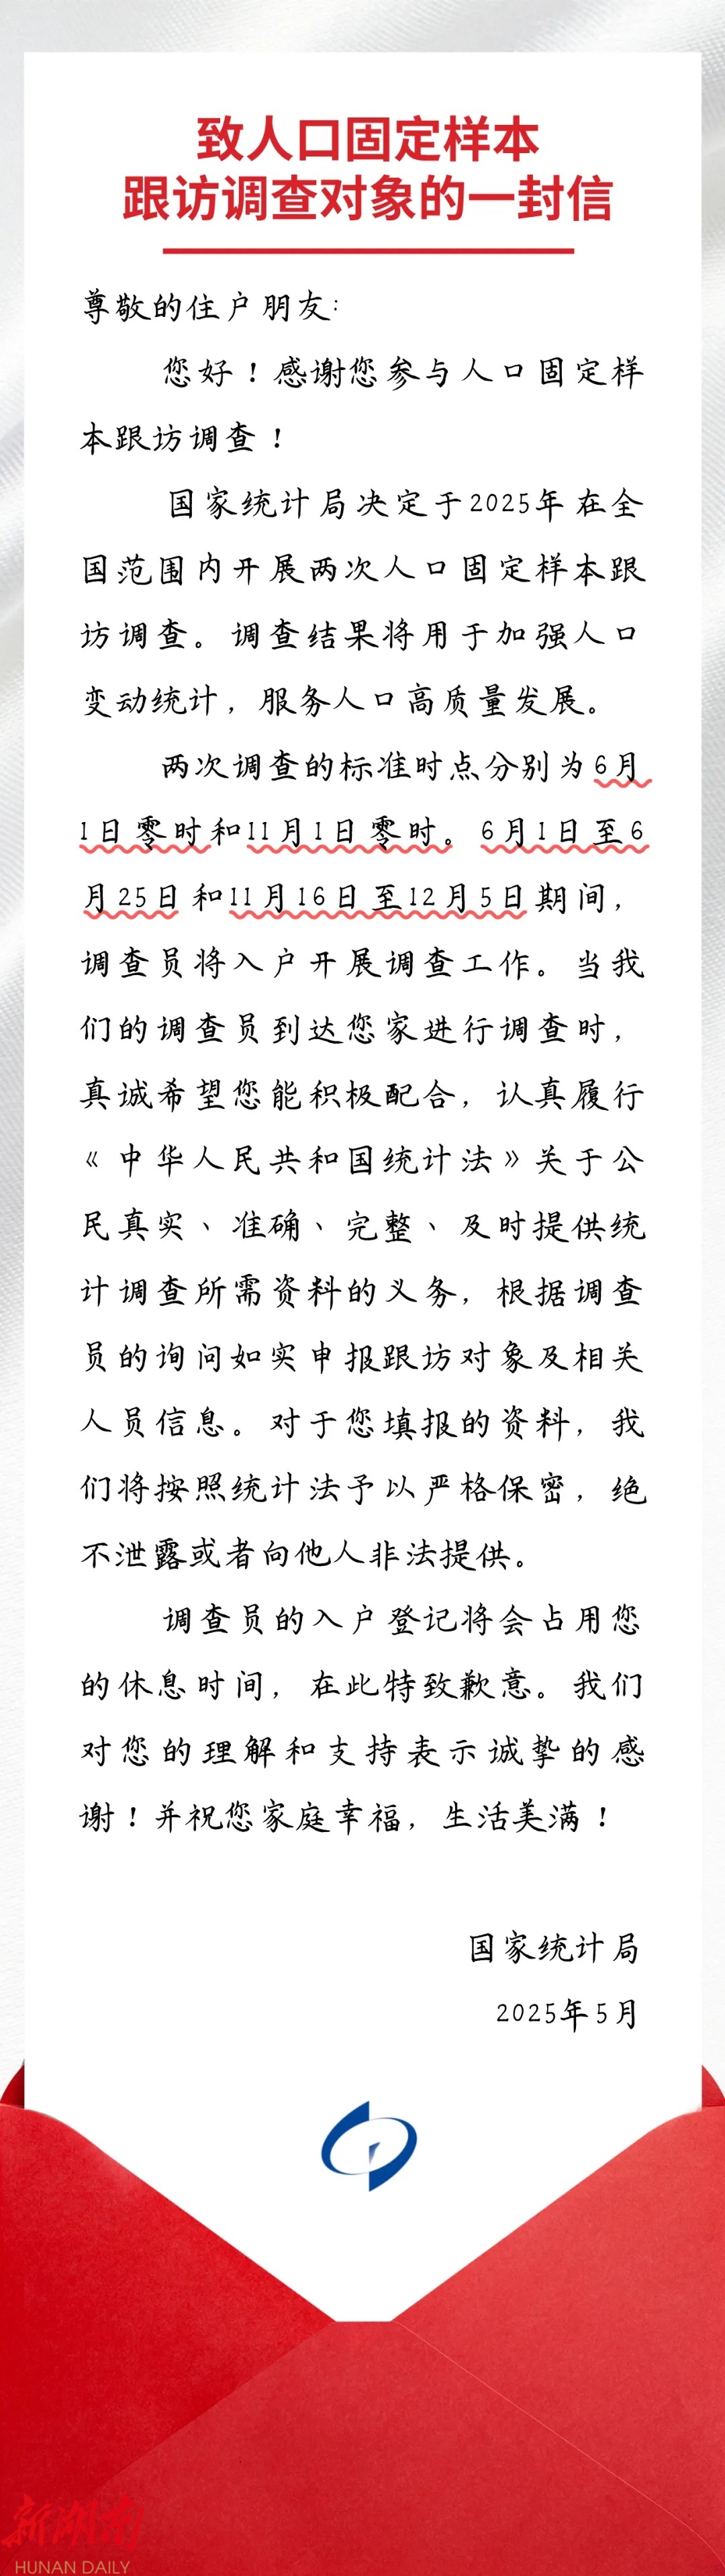 致人口固定样本
跟访调查对象的一封信
尊敬的住户朋友：
您好！感谢您参与人口固定样
本跟访调查！
国家统计局决定于2025年在全
国范围内开展两次人口固定样本跟
访调查。调查结果将用于加强人口
变动统计，服务人口高质量发展。
两次调查的标准时点分别为6月
1日零时和11月1日零时。6月1日至6
月25日和11月16日至12月5日期间，
调查员将入户开展调查工作。当我
们的调查员到达您家进行调查时，
真诚希望您能积极配合，认真履行
《中华人民共和国统计法》关于公
民真实、准确、完整、及时提供统
计调查所需资料的义务，根据调查
员的询问如实申报跟访对象及相关
人员信息。对于您填报的资料，我
们将按照统计法予以严格保密，绝
不泄露或者向他人非法提供。
调查员的入户登记将会占用您
的休息时间，在此特致歉意。我们
对您的理解和支持表示诚挚的感
谢！并祝您家庭幸福，生活美满！
国家统计局
2025年5月
新湖南
HUNAN DAILY